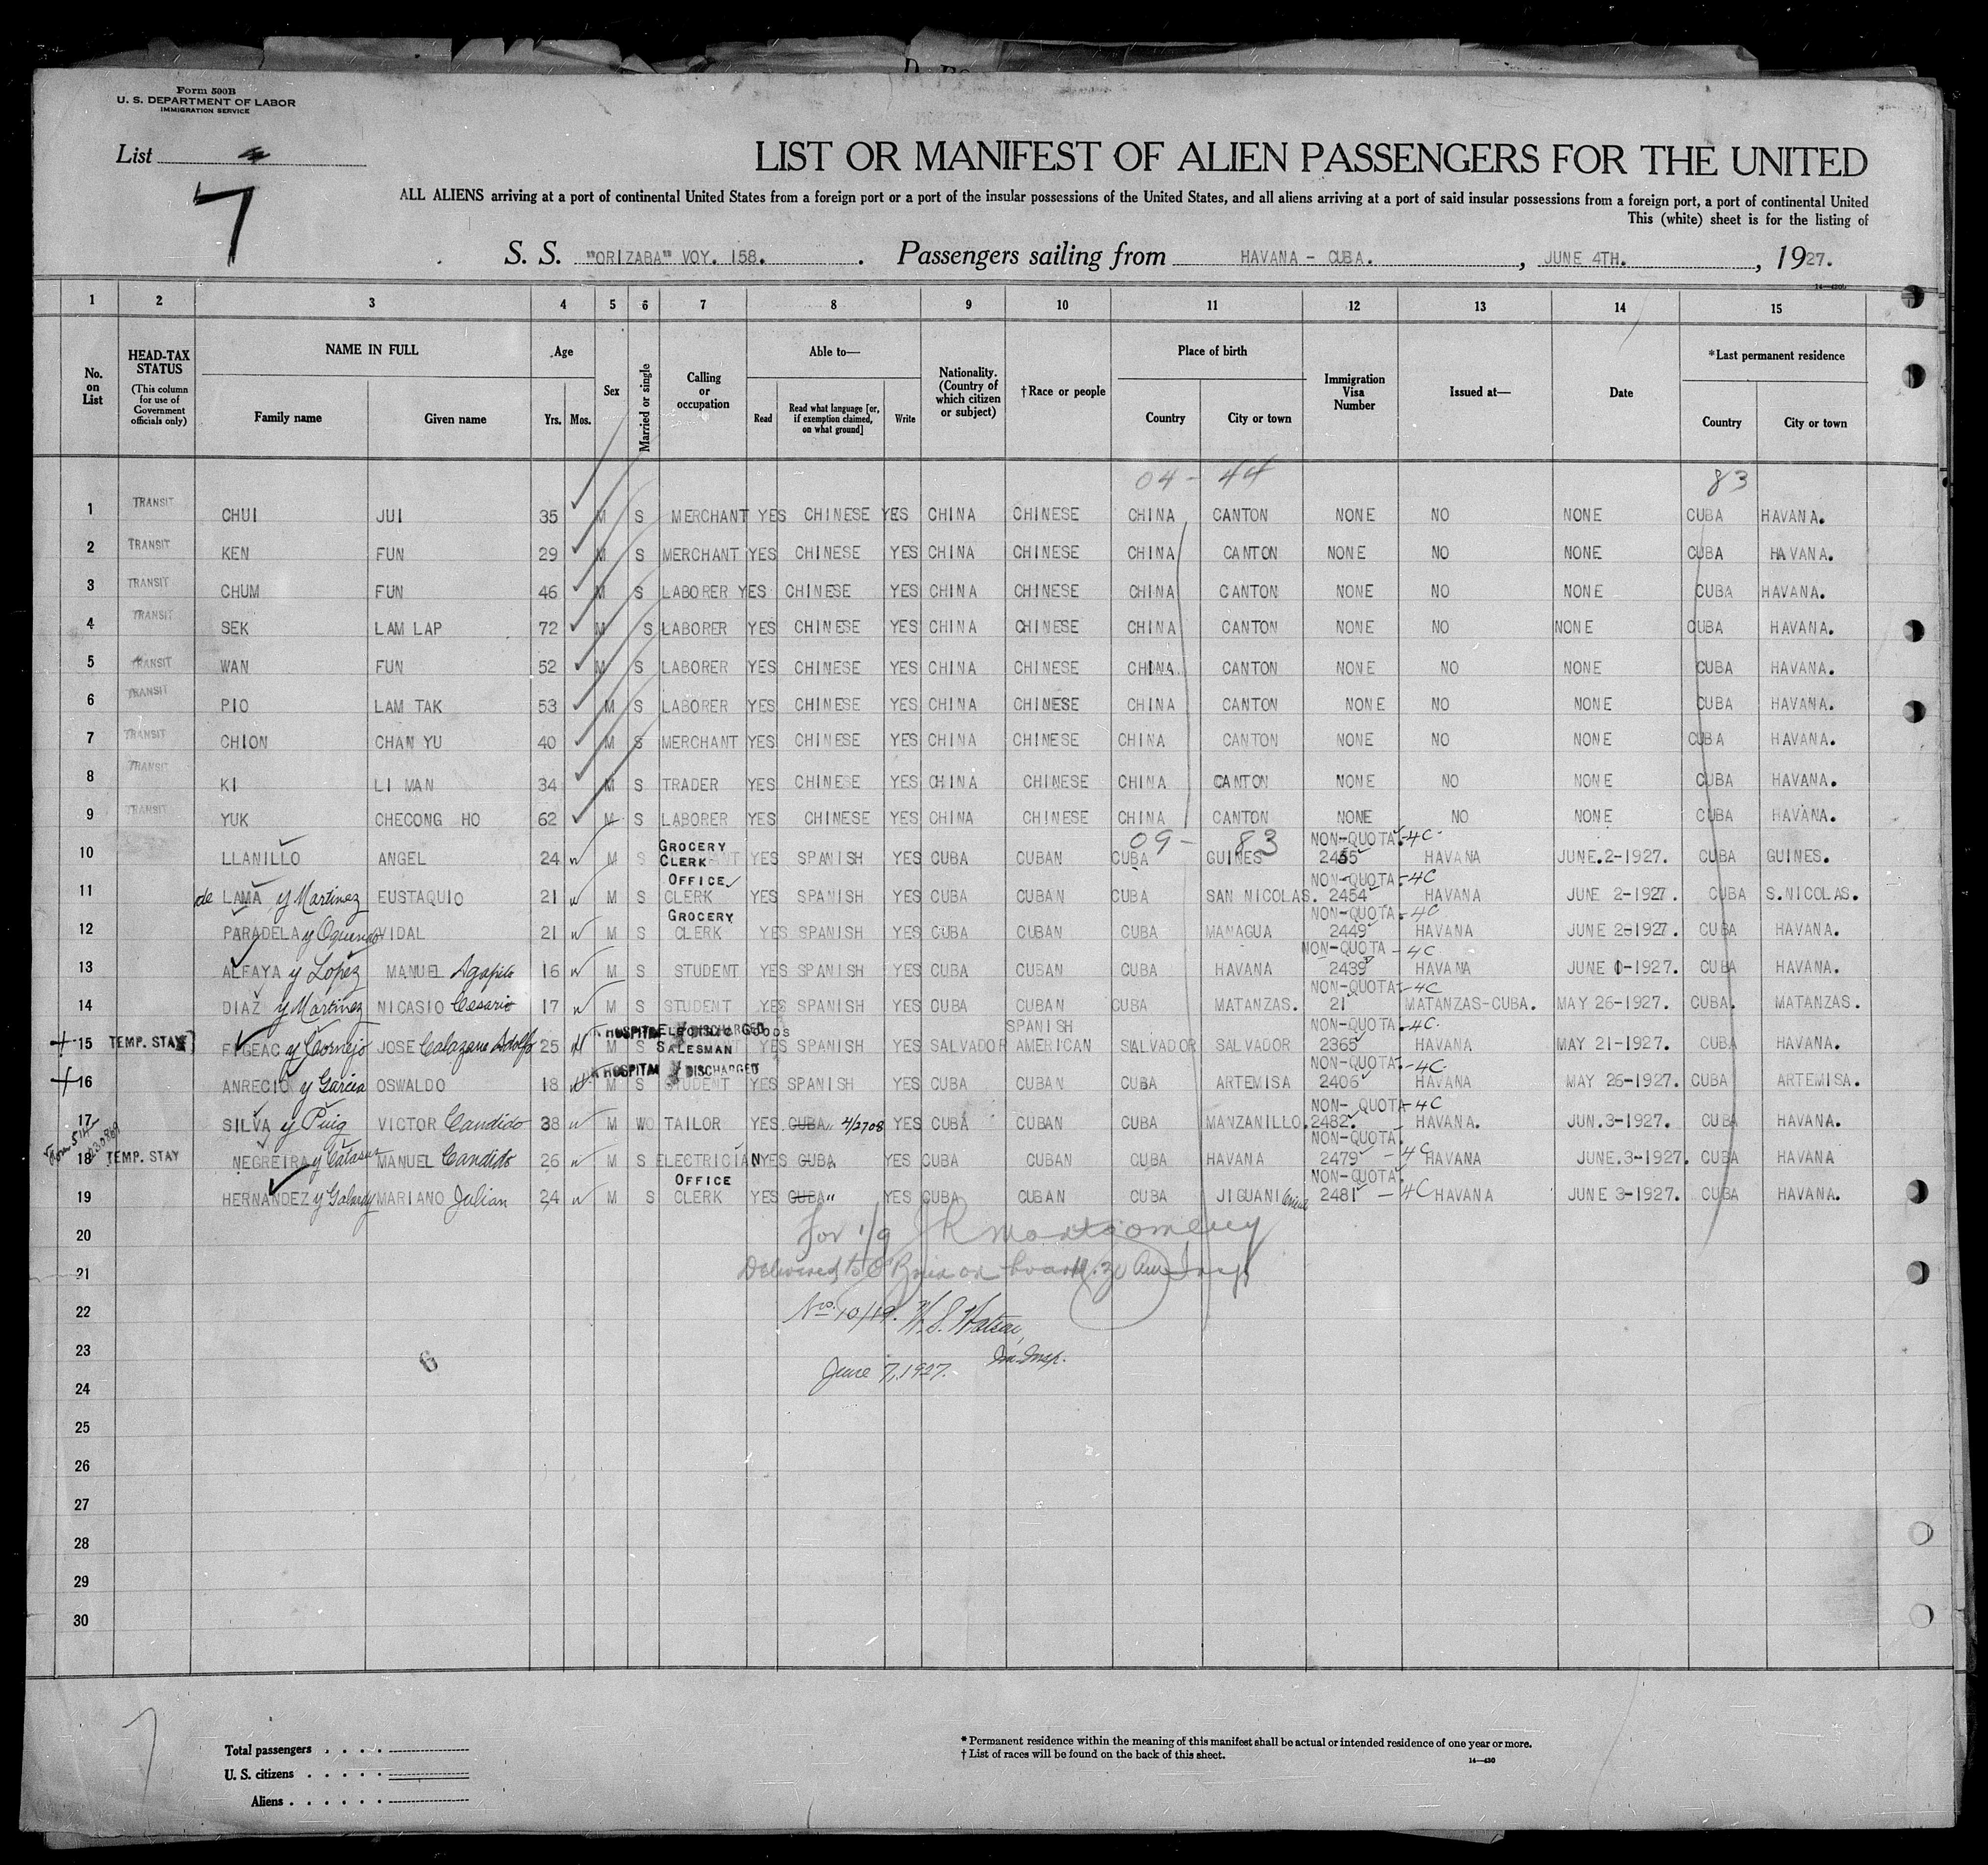 Form 500B
U. S. DEPARTMENT OF LABOR
IMMIGRATION SERVICE
List
7
LIST OR MANIFEST OF ALIEN PASSENGERS FOR THE UNITED
ALL ALIENS arriving at a port of continental United States from a foreign port or a port of the insular possessions of the United States, and all aliens arriving at a port of said insular possessions from a foreign port, a port of continental United
This (white) sheet is for the listing of
S. S. "ORIZABA" VOY. 158. Passengers sailing from HAVANA - CUBA. , JUNE 4TH. , 1927.
1 2 3 4 5 6 7 8 9 10 11 12 13 14 15
No. on List
HEAD-TAX STATUS (This column for use of Government officials only)
NAME IN FULL
Family name Given name
Age
Yrs. Mos.
Sex
Married or single
Calling or occupation
Able to—
Read Read what language [or, if exemption claimed, on what ground] Write
Nationality. (Country of which citizen or subject)
†Race or people
Place of birth
Country City or town
Immigration Visa Number
Issued at—
Date
*Last permanent residence
Country City or town
04 - 44 83
1 TRANSIT CHUI JUI 35 M S MERCHANT YES CHINESE YES CHINA CHINESE CHINA CANTON NONE NO NONE CUBA HAVANA.
2 TRANSIT KEN FUN 29 M S MERCHANT YES CHINESE YES CHINA CHINESE CHINA CANTON NONE NO NONE CUBA HAVANA.
3 TRANSIT CHUM FUN 46 M S LABORER YES CHINESE YES CHINA CHINESE CHINA CANTON NONE NO NONE CUBA HAVANA.
4 TRANSIT SEK LAM LAP 72 M S LABORER YES CHINESE YES CHINA CHINESE CHINA CANTON NONE NO NONE CUBA HAVANA.
5 TRANSIT WAN FUN 52 M S LABORER YES CHINESE YES CHINA CHINESE CHINA. CANTON NONE NO NONE CUBA HAVANA.
6 TRANSIT PIO LAM TAK 53 M S LABORER YES CHINESE YES CHINA CHINESE CHINA CANTON NONE NO NONE CUBA HAVANA.
7 TRANSIT CHION CHAN YU 40 M S MERCHANT YES CHINESE YES CHINA CHINESE CHINA CANTON NONE NO NONE CUBA HAVANA.
8 TRANSIT KI LI MAN 34 M S TRADER YES CHINESE YES CHINA CHINESE CHINA CANTON NONE NO NONE CUBA HAVANA.
9 TRANSIT YUK CHECONG HO 62 M S LABORER YES CHINESE YES CHINA CHINESE CHINA CANTON NONE NO NONE CUBA HAVANA.
GROCERY 09 - 83 NON-QUOTA.-4C.
10 LLANILLO ANGEL 24 M S CLERK YES SPANISH YES CUBA CUBAN CUBA GUINES 2455 HAVANA JUNE.2-1927. CUBA GUINES.
OFFICE NON-QUOTA.-4C
11 de LAMA y Martinez EUSTAQUIO 21 M S CLERK YES SPANISH YES CUBA CUBAN CUBA SAN NICOLAS. 2454 HAVANA JUNE 2-1927. CUBA S.NICOLAS.
GROCERY NON-QUOTA.-4C
12 PARADELA y Oquendo VIDAL 21 M S CLERK YES SPANISH YES CUBA CUBAN CUBA MANAGUA 2449 HAVANA JUNE 2-1927. CUBA HAVANA.
NON-QUOTA -4C.
13 ALFAYA y Lopez MANUEL Agapito 16 M S STUDENT YES SPANISH YES CUBA CUBAN CUBA HAVANA 2439 HAVANA JUNE 1-1927. CUBA HAVANA.
NON-QUOTA.-4C
14 DIAZ y Martinez NICASIO Cesario 17 M S STUDENT YES SPANISH YES CUBA CUBAN CUBA MATANZAS. 21 MATANZAS-CUBA. MAY 26-1927. CUBA. MATANZAS.
HOSPITAL DISCHARGED ELECTRIC GOODS SPANISH NON-QUOTA.-4C.
15 TEMP. STAY FIGEAC y Cornejo JOSE Calazans Adolfo 25 M S SALESMAN YES SPANISH YES SALVADOR AMERICAN SALVADOR SALVADOR 2365 HAVANA MAY 21-1927. CUBA HAVANA.
HOSPITAL DISCHARGED NON-QUOTA.-4C.
16 ANRECIO y Garcia OSWALDO 18 M S STUDENT YES SPANISH YES CUBA CUBAN CUBA ARTEMISA 2406 HAVANA MAY 26-1927. CUBA ARTEMISA.
NON- QUOTA-4C
17 SILVA y Puig VICTOR Candido 38 M WO TAILOR YES CUBA 4/2708 YES CUBA CUBAN CUBA MANZANILLO. 2482. HAVANA. JUN.3-1927. CUBA HAVANA.
NON-QUOTA.
18 TEMP. STAY NEGREIRA y Catasus MANUEL Candido 26 M S ELECTRICIAN YES CUBA YES CUBA CUBAN CUBA HAVANA 2479 - 4C HAVANA JUNE.3-1927. CUBA HAVANA
OFFICE NON-QUOTA.
19 HERNANDEZ y Galaray MARIANO Julian 24 M S CLERK YES CUBA " YES CUBA CUBAN CUBA JIGUANI 2481 - 4C HAVANA JUNE 3-1927. CUBA HAVANA.
20 For 1/9 JR Montgomery
21 Delivered to O'Brien on board
22 Nos. 10/19. W. S. Watson,
23 Im. Insp.
June 7, 1927.
6
24
25
26
27
28
29
30
7
Total passengers . . . .
U. S. citizens . . . . .
Aliens . . . . . .
* Permanent residence within the meaning of this manifest shall be actual or intended residence of one year or more.
† List of races will be found on the back of this sheet.
14—430